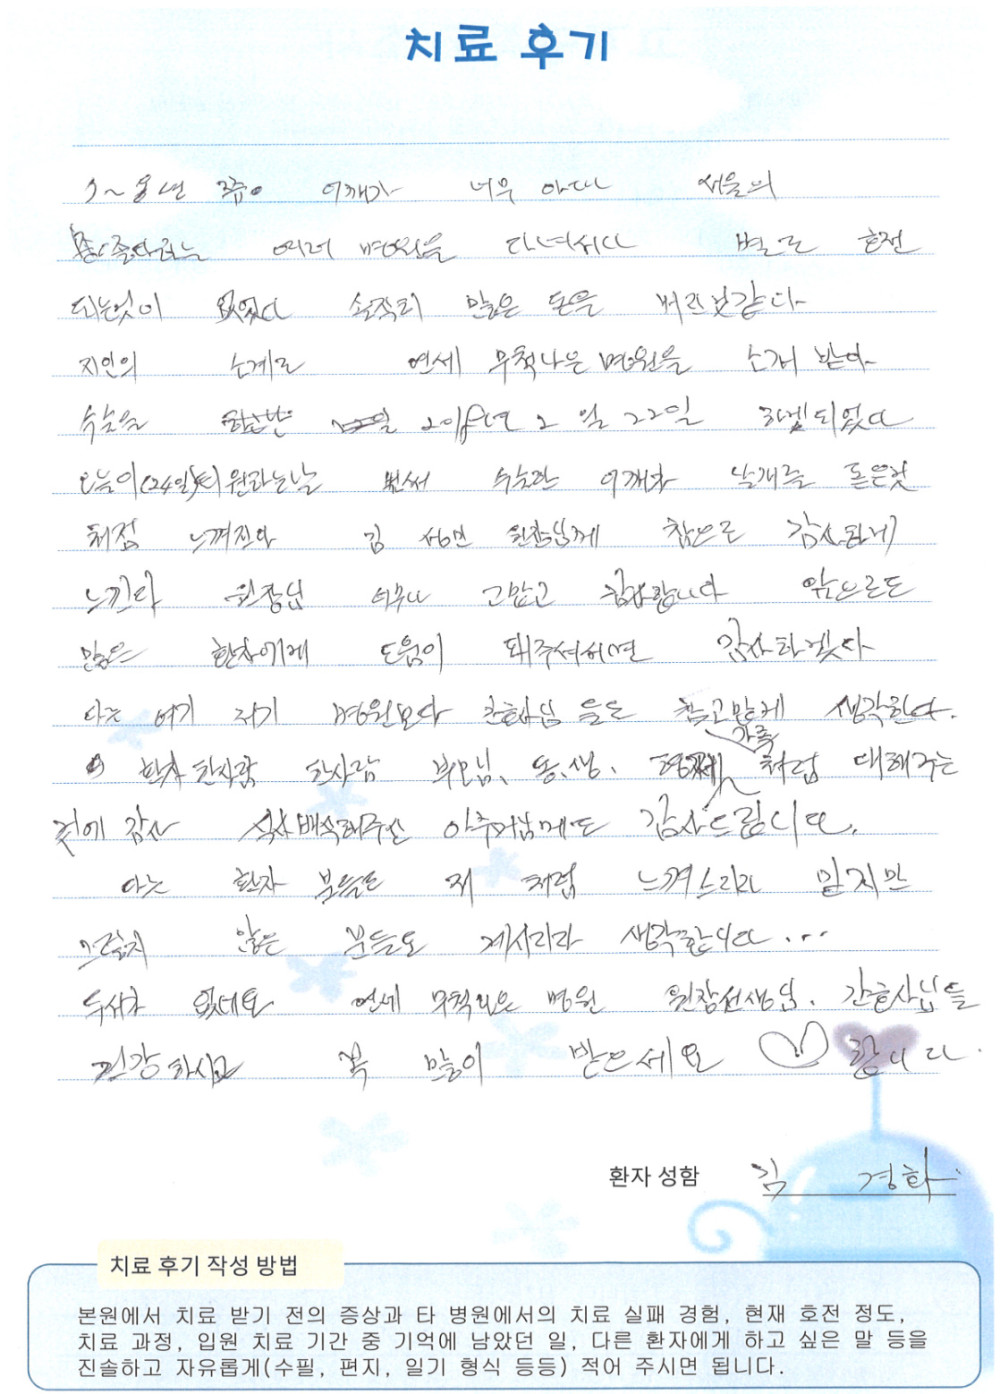 치료 후기
7~8년 쯤 어깨가 너무 아파 서울의
좋다라는 여러 병원을 다녀쓰나 별로 호전
되는것이 없었다 솔직히 많은 돈을 버린것같다
지인의 소개로 연세 무척나은병원을 소개 받아
수술을 2018년 2월 22일 하게되었다
오늘이(24일)퇴원하는날 벌써 수술한 어깨가 날개를 돋은것
처럼 느껴진다 김 원장님께 참으로 감사하게
느낀다 원장님 너무나 고맙고 감사합니다 앞으로도
많은 환자에게 도움이 돼주셔쓰면 감사하겠다
나는 여기 저기 병원보다 간호사님 들도 참고맙게 생각한다.
환자 한사람 한사람 부모님, 동생, 형제 가족 처럼 대해주는
것에 감사 식사배식해주신 아주머님께도 감사드립니다.
다른 환자 분들도 저 처럼 느껴스리라 믿지만
그렇지 않은 분들도 계시리라 생각합니다...
두서가 없네요 연세 무척나은 병원 원장선생님, 간호사님들
건강하시고 복 많이 받으세요 ♡ 합니다.
환자 성함 임 경화
치료 후기 작성 방법
본원에서 치료 받기 전의 증상과 타 병원에서의 치료 실패 경험, 현재 호전 정도,
치료 과정, 입원 치료 기간 중 기억에 남았던 일, 다른 환자에게 하고 싶은 말 등을
진솔하고 자유롭게(수필, 편지, 일기 형식 등등) 적어 주시면 됩니다.